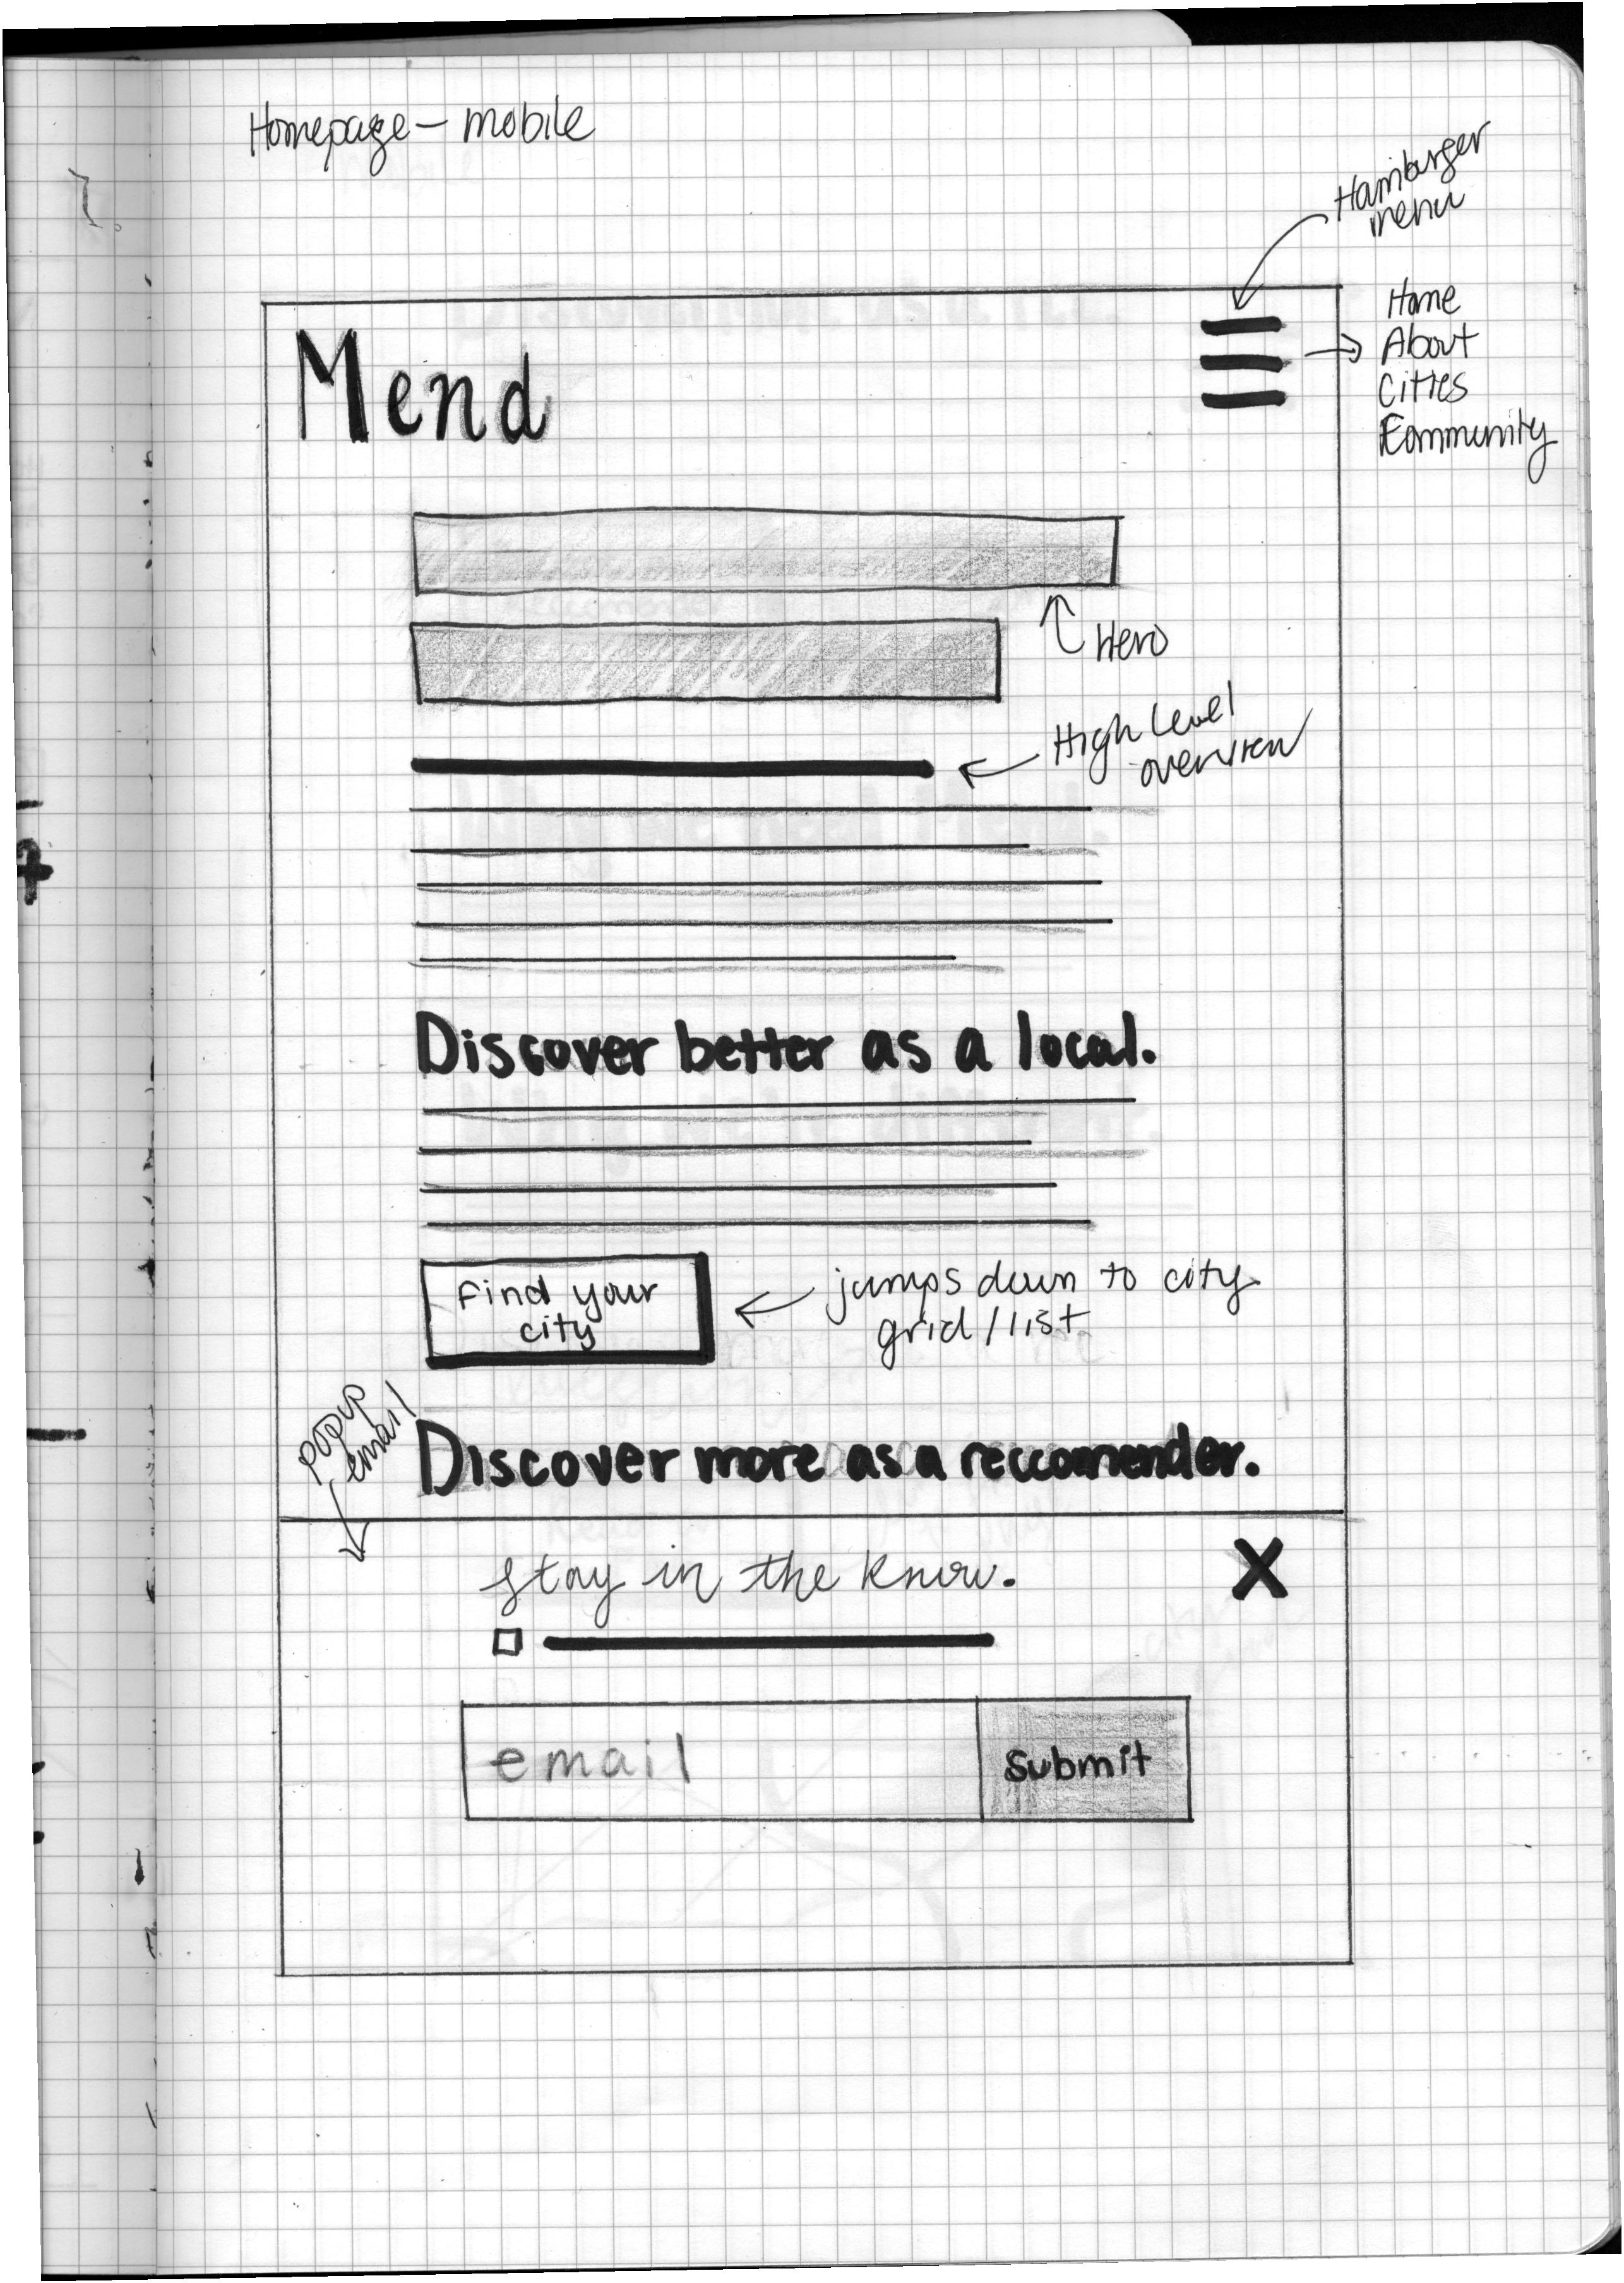 Homepage - mobile
Hamburger
menu
Home
About
Cities
Community
Mend
Hero
High level
overview
Discover better as a local.
Find your
city
jumps down to city
grid/list
popup
email
Discover more as a reccomender.
stay in the know.
X
email
Submit